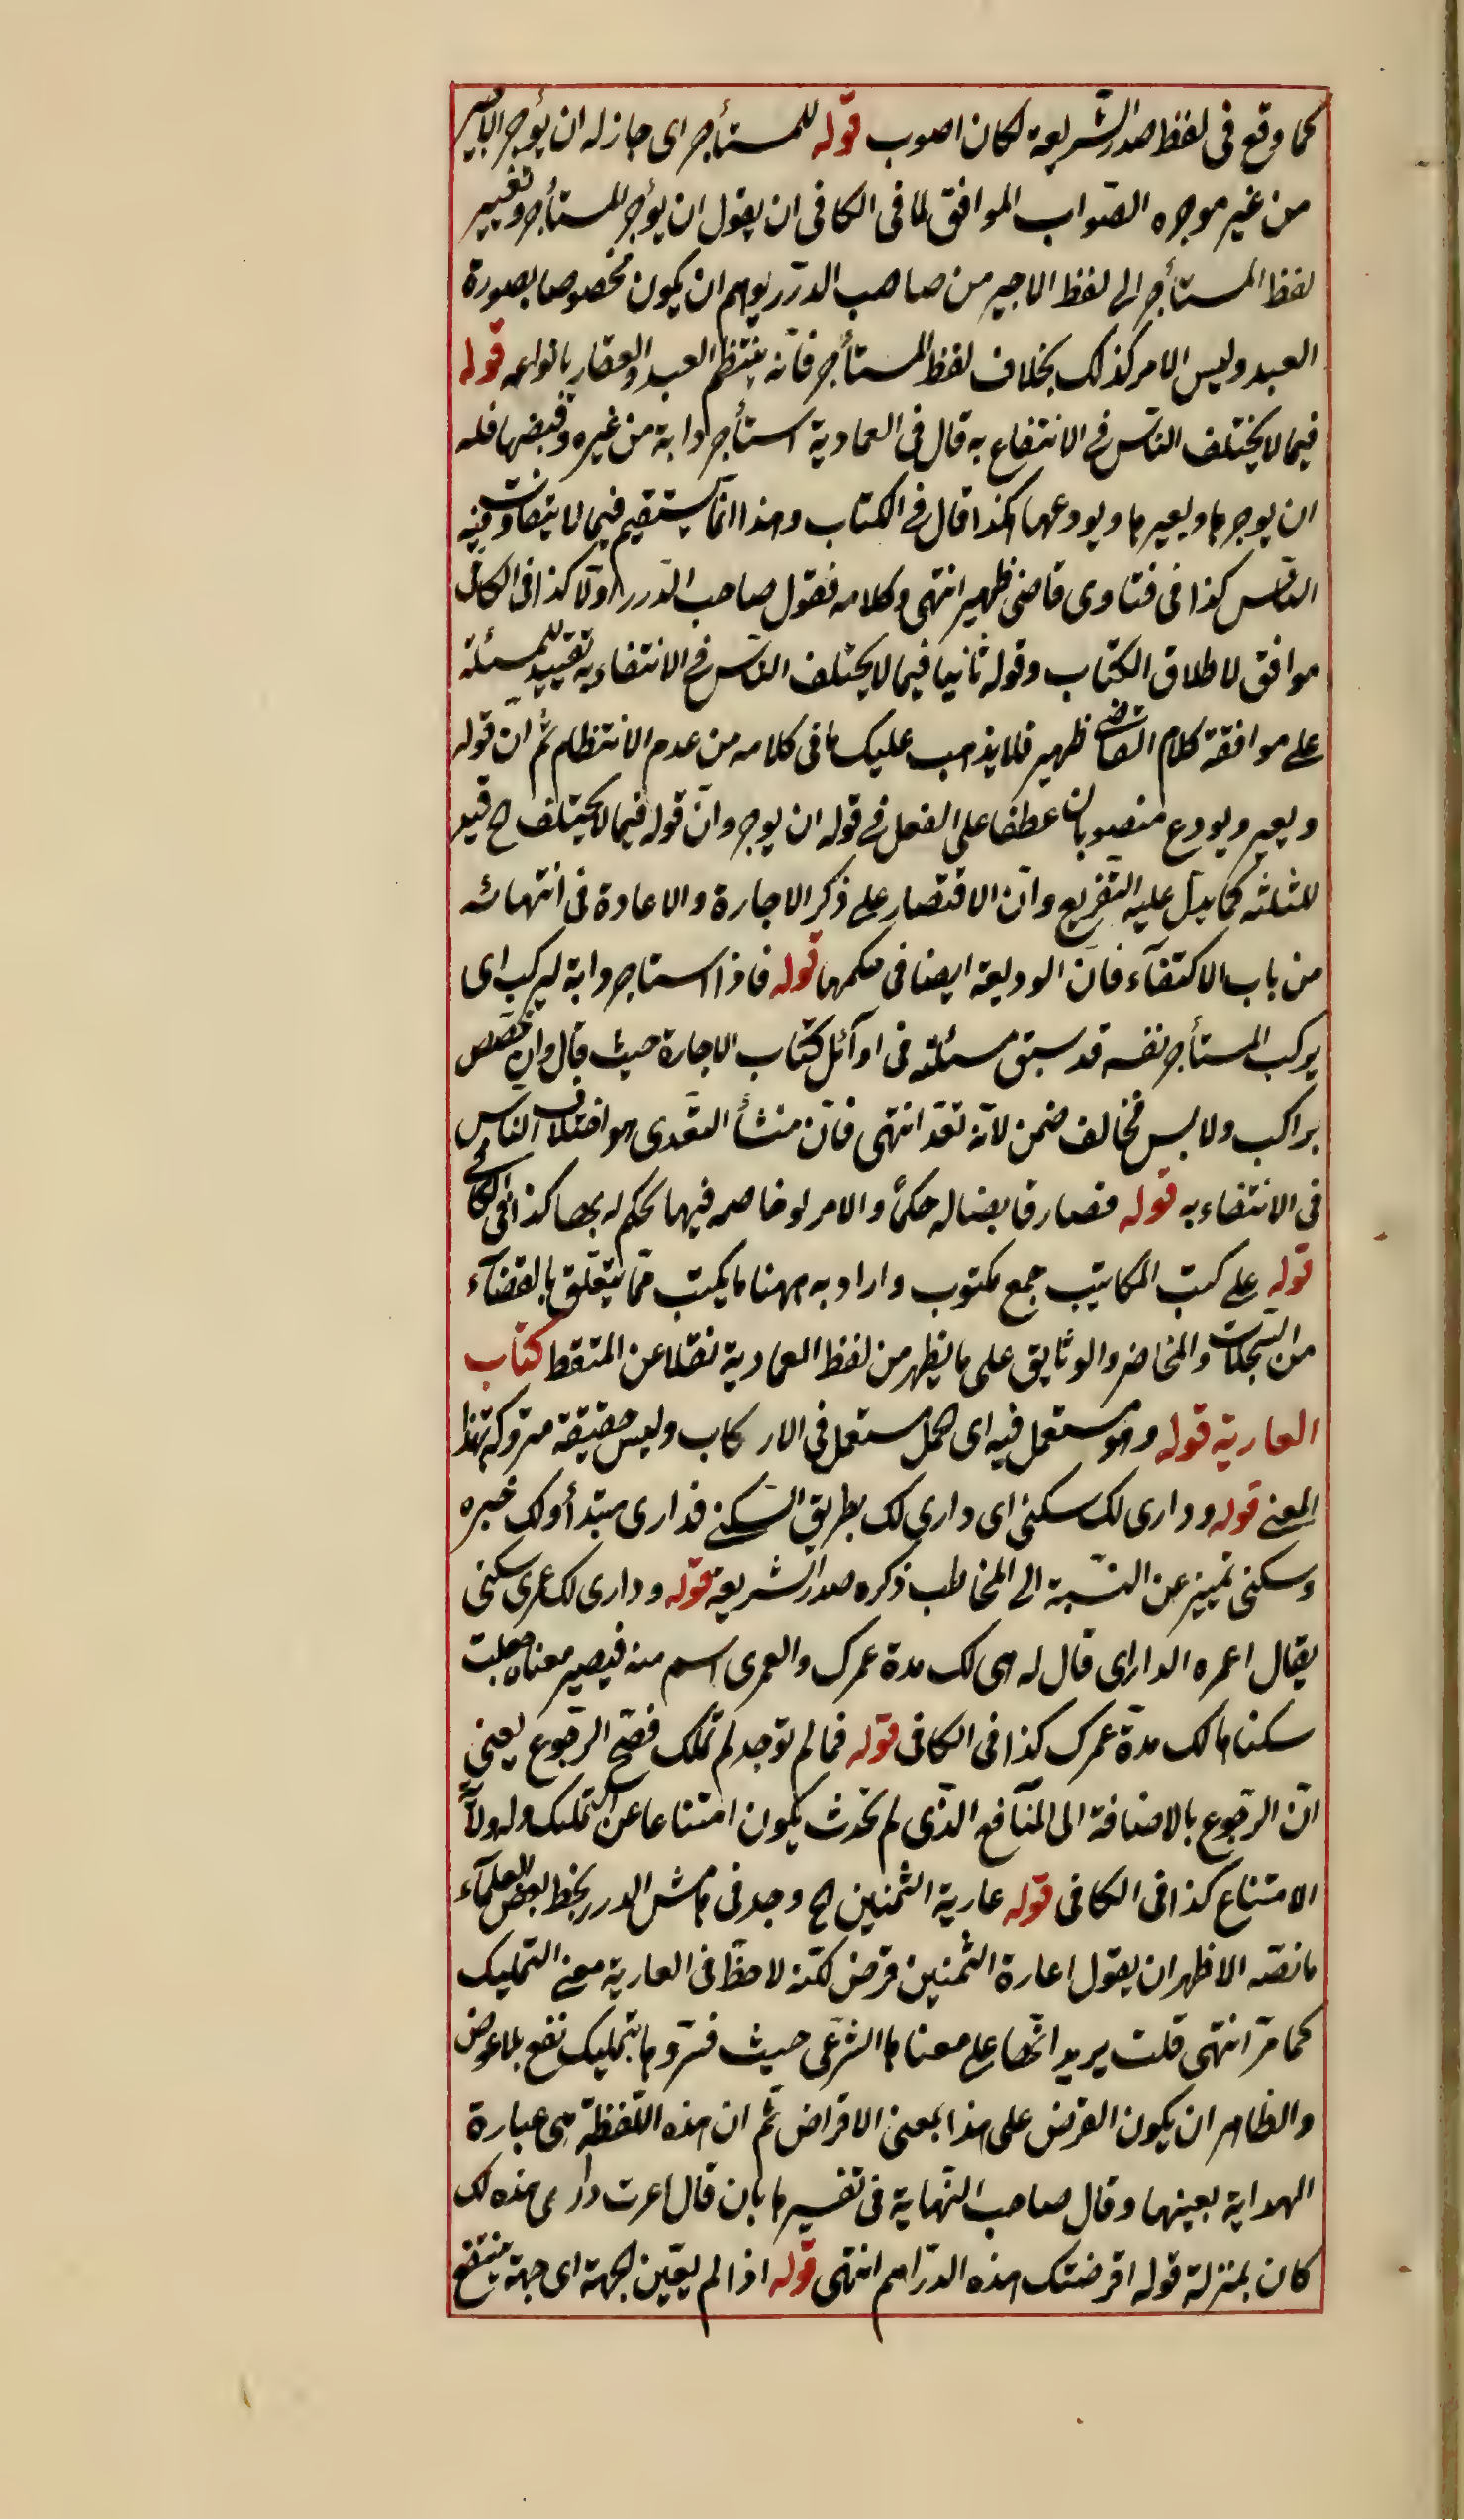 كما وقع فى لفظ صدر الشّريعة لكان اصوب قوله للمستأجر اى جاز له ان يؤجر الاجير
من غير موجره الصّواب الموافق لما فى الكافى ان يقول ان يؤجر المستأجر وتغيير
لفظ المستأجر الى لفظ الاجير من صاحب الدّرر يوهم ان يكون مخصوصا بصورة
العبد وليس الامر كذلك بخلاف لفظ المستأجر فانّه ينتظم العبد والعقار بانواعه قوله
فيما لا يختلف النّاس فى الانتفاع به قال فى العمادية استأجر دابة من غيره وقبضها فله
ان يوجرها ويعيرها ويودعها هكذا قال فى الكتاب وهذا انّما يستقيم فيما لا يتفاوت فيه
النّاس كذا فى فتاوى قاضى ظهير انتهى وكلامه فقول صاحب الدّرر اوّلا كذا فى الكافى
موافق لاطلاق الكتاب وقوله ثانيا فيما لا يختلف النّاس فى الانتفاع به تقييد للمسئلة
على موافقة كلام القاضى ظهير فلا يذهب عليك ما فى كلامه من عدم الانتظام ثم انّ قوله
ويعير ويودع منصوبان عطفا على الفعل فى قوله ان يوجر وانّ قوله فيما لا يختلف الخ قيد
للثلثة كما يدلّ عليه التّفريع وانّ الاقتصار على ذكر الاجارة والاعادة فى انتهائه
من باب الاكتفآء فانّ الوديعة ايضا فى حكمهما قوله فاذا استاجر دابة ليركب اى
يركب المستأجر نفسه قد سبق مسئلته فى اوآئل كتاب الاجارة حيث قال وان خصّص
براكب ولابس فخالف ضمن لانّه تعدّ انتهى فانّ منشأ التّعدى هو اختلاف النّاس
فى الانتفاع به قوله فصار قابضا له حكمًا والامر لو خاصمه فيهما يحكم له بها كذا فى الكافى
قوله على كتب المكاتيب جمع مكتوب واراد به ههنا ما يكتب ممّا يتعلّق بالقضآء
من السّجلات والمحاضر والوثايق على ما يظهر من لفظ العمادية نقلا عن الملتقط كتاب
العارية قوله وهو مستعمل فيه اى حمل مستعمل فى الاركاب وليس حقيقة متروكة بهذا
المعنى قوله ودارى لك سكنى اى دارى لك بطريق السّكنى فدارى مبتدأ ولك خبره
وسكنى تمييز عن النّسبة الى المخاطب ذكره صدر الشّريعة قوله ودارى لك عمرى سكنى
يقال اعمره الدار اى قال له هى لك مدة عمرك والعمرى اسم منه فيصير معناه جعلت
سكناها لك مدّة عمرك كذا فى الكافى قوله فما لم توجد لم تملك فصحّ الرّجوع يعنى
انّ الرّجوع بالاضافة الى المنآفع الذّى لم تحدث يكون امتناعا عن التّمليك وله ولاية
الامتناع كذا فى الكافى قوله عارية الثمنين الخ وجد فى هامش الدرر بخط بعض العلمآء
ما نصّه الاظهر ان يقول اعارة الثّمنين قرض لكنّه لاحظ فى العارية معنى التّمليك
كما مرّ انتهى قلت يريد انّها على معناها الشّرعى حيث فسّروها بتمليك نفع بلا عوض
والظاهر ان يكون القرض على هذا بمعنى الاقراض ثم ان هذه اللّفظة هى عبارة
الهداية بعينها وقال صاحب النّهاية فى تفسيرها بان قال اعرت دارى هذه لك
كان بمنزلة قوله اقرضتك هذه الدّراهم انتهى قوله اذا لم يعيّن الجهة اى جهة ينتفع